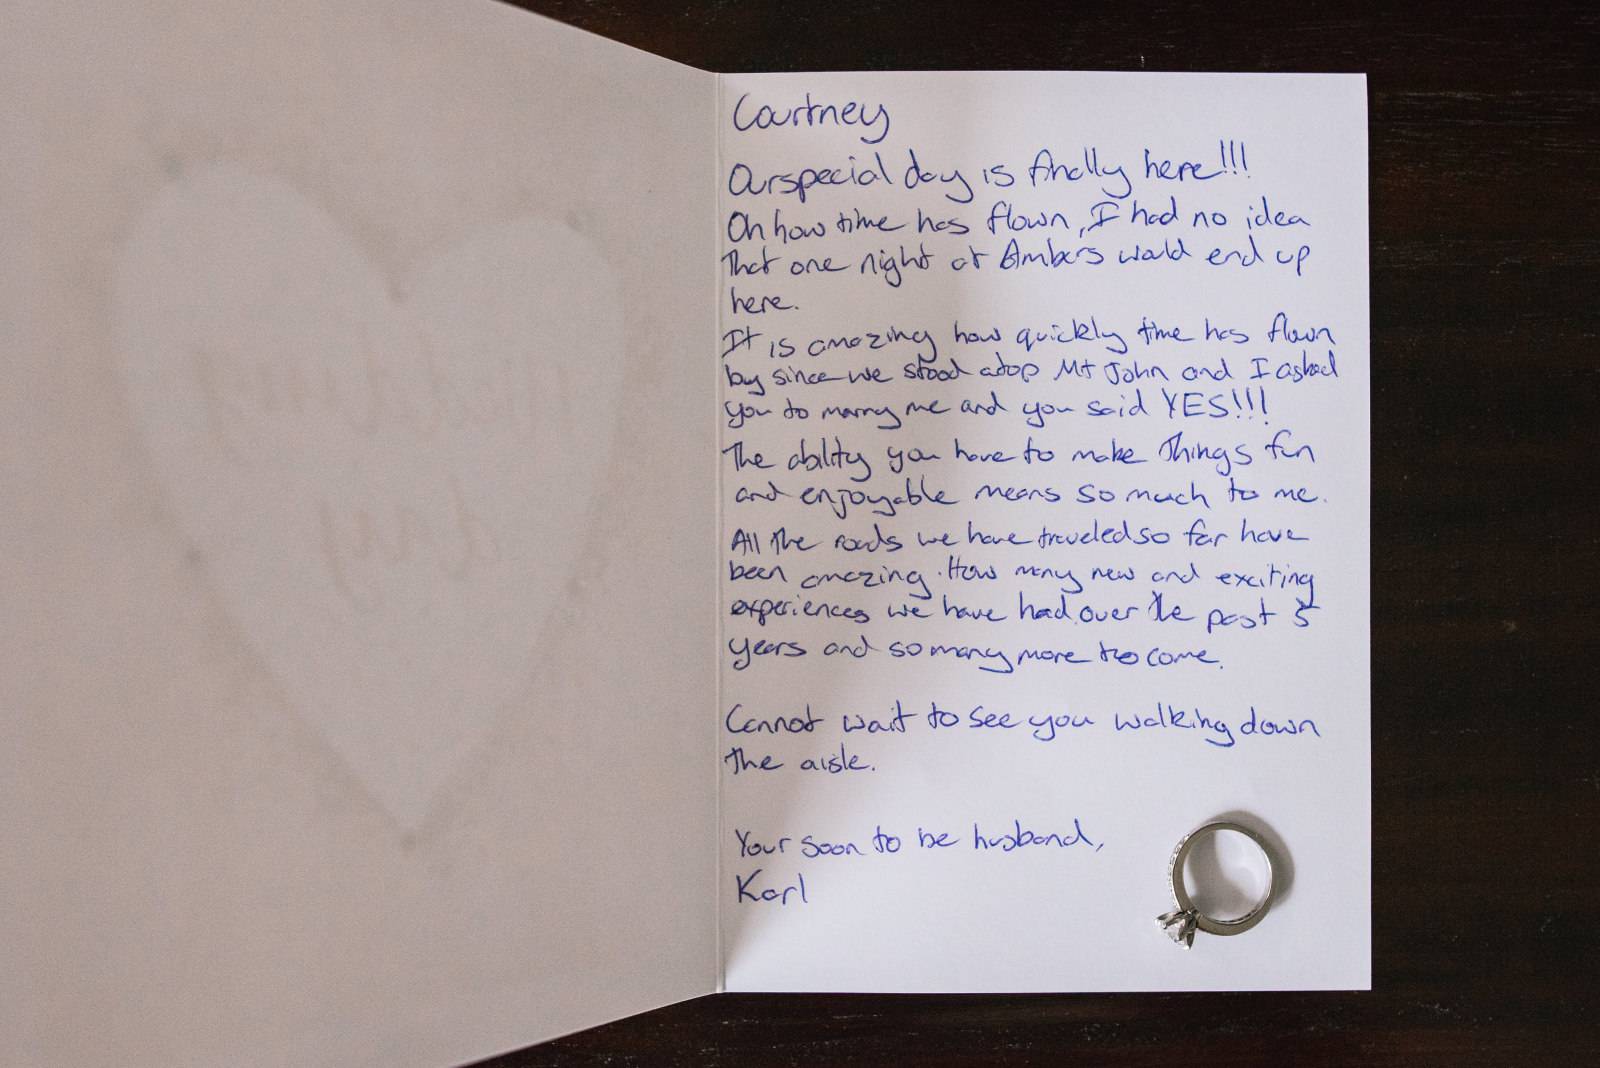 Courtney
Our special day is finally here!!!
Oh how time has flown, I had no idea
that one night at Ambers would end up
here.
It is amazing how quickly time has flown
by since we stood atop Mt John and I asked
you to marry me and you said YES!!!
The ability you have to make things fun
and enjoyable means so much to me.
All the roads we have traveled so far have
been amazing. How many new and exciting
experiences we have had over the past 5
years and so many more to come.
Cannot wait to see you walking down
the aisle.
Your soon to be husband,
Karl